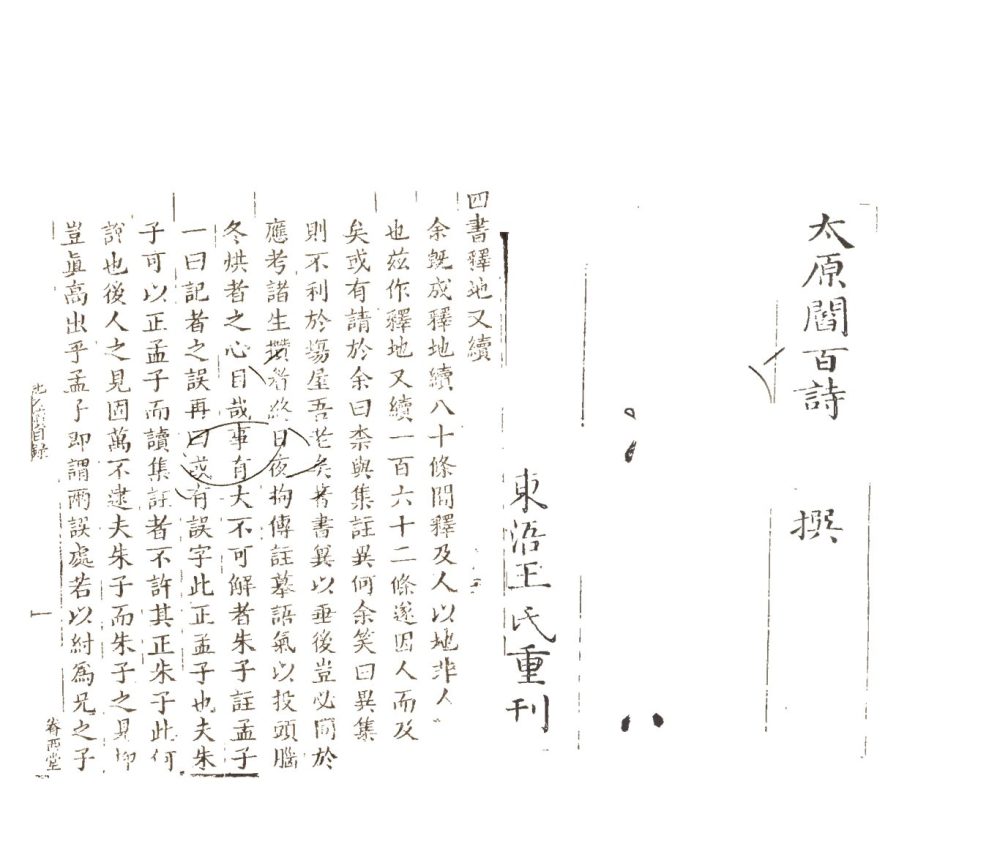 太原閻百詩 撰
東浯王氏重刊
四書釋地又續
余既成釋地續八十條間釋及人以地非人
也茲作釋地又續一百六十二條遂因人而及
矣或有請於余曰柰與集註異何余笑曰異集
則不利於塲屋吾老矣著書異以垂後豈必同於
應考諸生攢眉終日夜拘傳註摹語氣以投頭腦
冬烘者之心目哉事有大不可解者朱子註孟子
一曰記者之誤再曰或有誤字此正孟子也夫朱
子可以正孟子而讀集註者不許其正朱子此何
說也後人之見固萬不逮夫朱子而朱子之見抑
豈眞高出乎孟子即謂兩誤處若以紂爲兄之子
目錄
一
眷西堂